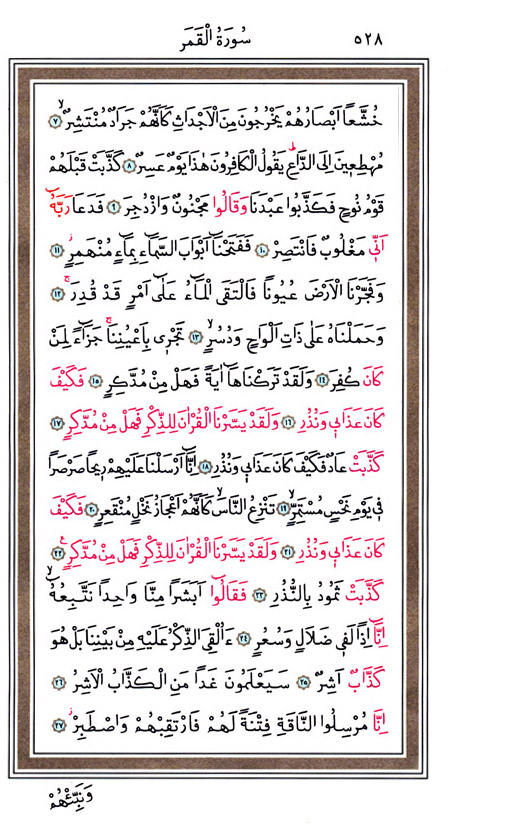 سُورَةُ الْقَمَرِ ٥٢٨
خُشَّعاً اَبْصَارُهُمْ يَخْرُجُونَ مِنَ الْاَجْدَاثِ كَاَنَّهُمْ جَرَادٌ مُنْتَشِرٌۙ ﴿٧﴾
مُهْطِع۪ينَ اِلَى الدَّاعِۜ يَقُولُ الْكَافِرُونَ هٰذَا يَوْمٌ عَسِرٌ ﴿٨﴾ كَذَّبَتْ قَبْلَهُمْ
قَوْمُ نُوحٍ فَكَذَّبُوا عَبْدَنَا وَقَالُوا مَجْنُونٌ وَازْدُجِرَ ﴿٩﴾ فَدَعَا رَبَّهُٓ
اَنّ۪ي مَغْلُوبٌ فَانْتَصِرْ ﴿١٠﴾ فَفَتَحْنَٓا اَبْوَابَ السَّمَٓاءِ بِمَٓاءٍ مُنْهَمِرٍۘ ﴿١١﴾
وَفَجَّرْنَا الْاَرْضَ عُيُوناً فَالْتَقَى الْمَٓاءُ عَلٰٓى اَمْرٍ قَدْ قُدِرَۚ ﴿١٢﴾
وَحَمَلْنَاهُ عَلٰى ذَاتِ اَلْوَاحٍ وَدُسُرٍۙ ﴿١٣﴾ تَجْر۪ي بِاَعْيُنِنَاۚ جَزَٓاءً لِمَنْ
كَانَ كُفِرَ ﴿١٤﴾ وَلَقَدْ تَرَكْنَاهَٓا اٰيَةً فَهَلْ مِنْ مُدَّكِرٍ ﴿١٥﴾ فَكَيْفَ
كَانَ عَذَاب۪ي وَنُذُرِ ﴿١٦﴾ وَلَقَدْ يَسَّرْنَا الْقُرْاٰنَ لِلذِّكْرِ فَهَلْ مِنْ مُدَّكِرٍ ﴿١٧﴾
كَذَّبَتْ عَادٌ فَكَيْفَ كَانَ عَذَاب۪ي وَنُذُرِ ﴿١٨﴾ اِنَّٓا اَرْسَلْنَا عَلَيْهِمْ ر۪يحاً صَرْصَراً
ف۪ي يَوْمِ نَحْسٍ مُسْتَمِرٍّۙ ﴿١٩﴾ تَنْزِعُ النَّاسَۙ كَاَنَّهُمْ اَعْجَازُ نَخْلٍ مُنْقَعِرٍ ﴿٢٠﴾ فَكَيْفَ
كَانَ عَذَاب۪ي وَنُذُرِ ﴿٢١﴾ وَلَقَدْ يَسَّرْنَا الْقُرْاٰنَ لِلذِّكْرِ فَهَلْ مِنْ مُدَّكِرٍ۟ ﴿٢٢﴾
كَذَّبَتْ ثَمُودُ بِالنُّذُرِ ﴿٢٣﴾ فَقَالُٓوا اَبَشَراً مِنَّا وَاحِداً نَتَّبِعُهُٓۙ
اِنَّٓا اِذاً لَف۪ي ضَلَالٍ وَسُعُرٍ ﴿٢٤﴾ ءَاُلْقِيَ الذِّكْرُ عَلَيْهِ مِنْ بَيْنِنَا بَلْ هُوَ
كَذَّابٌ اَشِرٌ ﴿٢٥﴾ سَيَعْلَمُونَ غَداً مَنِ الْكَذَّابُ الْاَشِرُ ﴿٢٦﴾
اِنَّا مُرْسِلُوا النَّاقَةِ فِتْنَةً لَهُمْ فَارْتَقِبْهُمْ وَاصْطَبِرْۘ ﴿٢٧﴾
وَنَبِّئْهُمْ